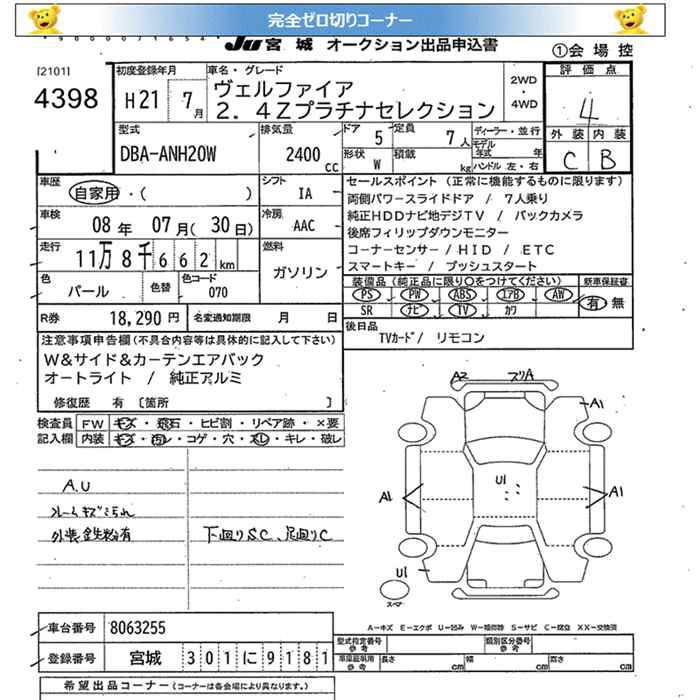 完全ゼロ切りコーナー
JU宮城 オークション出品申込書
①会場控
[2101]
4398
初度登録年月
H21 7月
車名・グレード
ヴェルファイア
2.4Zプラチナセレクション
2WD
・
4WD
評価点
4
外装 内装
C B
型式
DBA-ANH20W
排気量
2400 cc
ドア 5
定員 7人
ディーラー・並行
モデル年式 年
形状 W
積載 kg
ハンドル 左・右
車歴
自家用・( )
シフト
IA
車検
08年 07月(30日)
冷房
AAC
走行
11万8千662km
燃料
ガソリン
色
パール
色替
色コード
070
R券 18,290円
名変通知期限 月 日
セールスポイント(正常に機能するものに限ります)
両側パワースライドドア / 7人乗り
純正HDDナビ地デジTV / バックカメラ
後席フィリップダウンモニター
コーナーセンサー/HID / ETC
スマートキー / プッシュスタート
装備品(純正品に限り○をつけてください)
新車保証書
PS PW ABS エアB AW
有 無
SR ナビ TV カワ
後日品
TVカード/ リモコン
注意事項申告欄(不具合内容等は具体的に記入して下さい)
W&サイド&カーテンエアバック
オートライト / 純正アルミ
修復歴 有 〔箇所 〕
検査員記入欄
FW キズ・飛石・ヒビ割・リペア跡・×要
内装 キズ・汚れ・コゲ・穴・スレ・キレ・破レ
A.U
フレームキズこすれ
外装鉄粉有
下回りSC、足回りC
A2 ズリA
A1
U1
A1
A1
U1
スペア
A-キズ E-エクボ U-凹み W-補修跡 S-サビ C-腐蝕 XX-交換済
車台番号 8063255
登録番号 宮城 301に9181
型式指定番号 参考
類別区分番号 参考
車庫証明用 参考
長さ cm
幅 cm
高さ cm
希望出品コーナー(コーナーは各会場により異なります。)